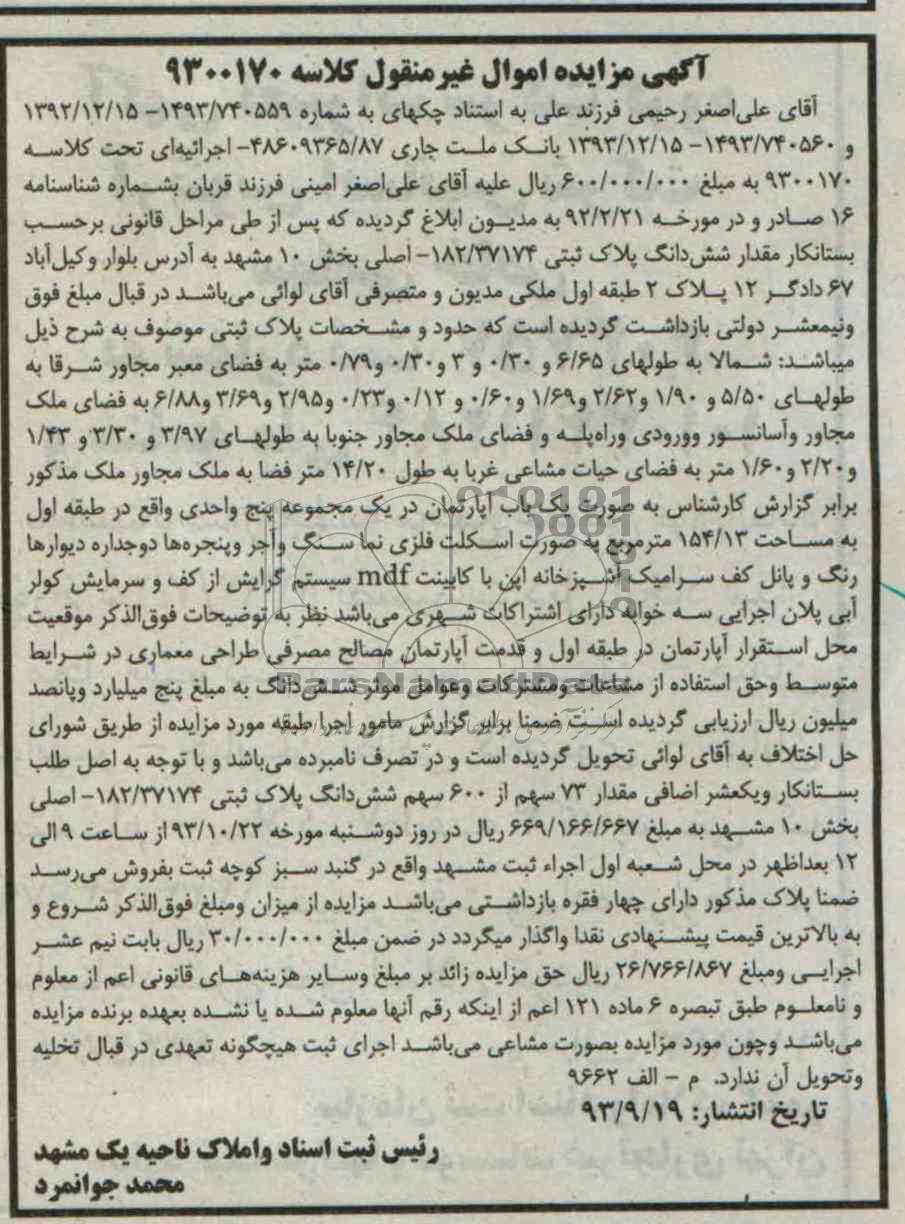 آگهی مزایده اموال غیرمنقول کلاسه ۹۳۰۰۱۷۰
آقای علی‌اصغر رحیمی فرزند علی به استناد چکهای به شماره ۱۴۹۳/۷۴۰۵۵۹- ۱۳۹۲/۱۲/۱۵
و ۱۴۹۳/۷۴۰۵۶۰- ۱۳۹۳/۱۲/۱۵ بانک ملت جاری ۴۸۶۰۹۳۶۵/۸۷- اجرائیه‌ای تحت کلاسه
۹۳۰۰۱۷۰ به مبلغ ۶۰۰/۰۰۰/۰۰۰ ریال علیه آقای علی‌اصغر امینی فرزند قربان بشماره شناسنامه
۱۶ صادر و در مورخه ۹۲/۲/۲۱ به مدیون ابلاغ گردیده که پس از طی مراحل قانونی برحسب
بستانکار مقدار شش‌دانگ پلاک ثبتی ۱۸۲/۳۷۱۷۴- اصلی بخش ۱۰ مشهد به آدرس بلوار وکیل‌آباد
۶۷ دادگر ۱۲ پلاک ۲ طبقه اول ملکی مدیون و متصرفی آقای لوائی می‌باشد در قبال مبلغ فوق
ونیمعشر دولتی بازداشت گردیده است که حدود و مشخصات پلاک ثبتی موصوف به شرح ذیل
میباشد: شمالا به طولهای ۶/۶۵ و ۰/۳۰ و ۳ و۰/۳۰ و۰/۷۹ متر به فضای معبر مجاور شرقا به
طولهای ۵/۵۰ و ۱/۹۰ و۲/۶۲ و۱/۶۹ و۰/۶۰ و ۰/۱۲ و۰/۲۳ و۲/۹۵ و۳/۶۹ و۶/۸۸ به فضای ملک
مجاور وآسانسور وورودی وراه‌پله و فضای ملک مجاور جنوبا به طولهای ۳/۹۷ و ۳/۳۰ و ۱/۴۳
و۲/۲۰ و۱/۶۰ متر به فضای حیات مشاعی غربا به طول ۱۴/۲۰ متر فضا به ملک مجاور ملک مذکور
برابر گزارش کارشناس به صورت یک باب آپارتمان در یک مجموعه پنج واحدی واقع در طبقه اول
به مساحت ۱۵۴/۱۳ مترمربع به صورت اسکلت فلزی نما سنگ وآجر وپنجره‌ها دوجداره دیوارها
رنگ و پانل کف سرامیک آشپزخانه اپن با کابینت mdf سیستم گرایش از کف و سرمایش کولر
آبی پلان اجرایی سه خوابه دارای اشتراکات شهری می‌باشد نظر به توضیحات فوق‌الذکر موقعیت
محل استقرار آپارتمان در طبقه اول و قدمت آپارتمان مصالح مصرفی طراحی معماری در شرایط
متوسط وحق استفاده از مشاعات ومشترکات وعوامل موثر شش‌دانگ به مبلغ پنج میلیارد وپانصد
میلیون ریال ارزیابی گردیده است ضمنا برابر گزارش مامور اجرا طبقه مورد مزایده از طریق شورای
حل اختلاف به آقای لوائی تحویل گردیده است و در تصرف نامبرده می‌باشد و با توجه به اصل طلب
بستانکار ویکعشر اضافی مقدار ۷۳ سهم از ۶۰۰ سهم شش‌دانگ پلاک ثبتی ۱۸۲/۳۷۱۷۴- اصلی
بخش ۱۰ مشهد به مبلغ ۶۶۹/۱۶۶/۶۶۷ ریال در روز دوشنبه مورخه ۹۳/۱۰/۲۲ از ساعت ۹ الی
۱۲ بعداظهر در محل شعبه اول اجراء ثبت مشهد واقع در گنبد سبز کوچه ثبت بفروش می‌رسد
ضمنا پلاک مذکور دارای چهار فقره بازداشتی می‌باشد مزایده از میزان ومبلغ فوق‌الذکر شروع و
به بالاترین قیمت پیشنهادی نقدا واگذار میگردد در ضمن مبلغ ۳۰/۰۰۰/۰۰۰ ریال بابت نیم عشر
اجرایی ومبلغ ۲۶/۷۶۶/۸۶۷ ریال حق مزایده زائد بر مبلغ وسایر هزینه‌های قانونی اعم از معلوم
و نامعلوم طبق تبصره ۶ ماده ۱۲۱ اعم از اینکه رقم آنها معلوم شده یا نشده بعهده برنده مزایده
می‌باشد وچون مورد مزایده بصورت مشاعی می‌باشد اجرای ثبت هیچگونه تعهدی در قبال تخلیه
وتحویل آن ندارد. م - الف ۹۶۶۲
تاریخ انتشار: ۹۳/۹/۱۹
رئیس ثبت اسناد واملاک ناحیه یک مشهد
محمد جوانمرد